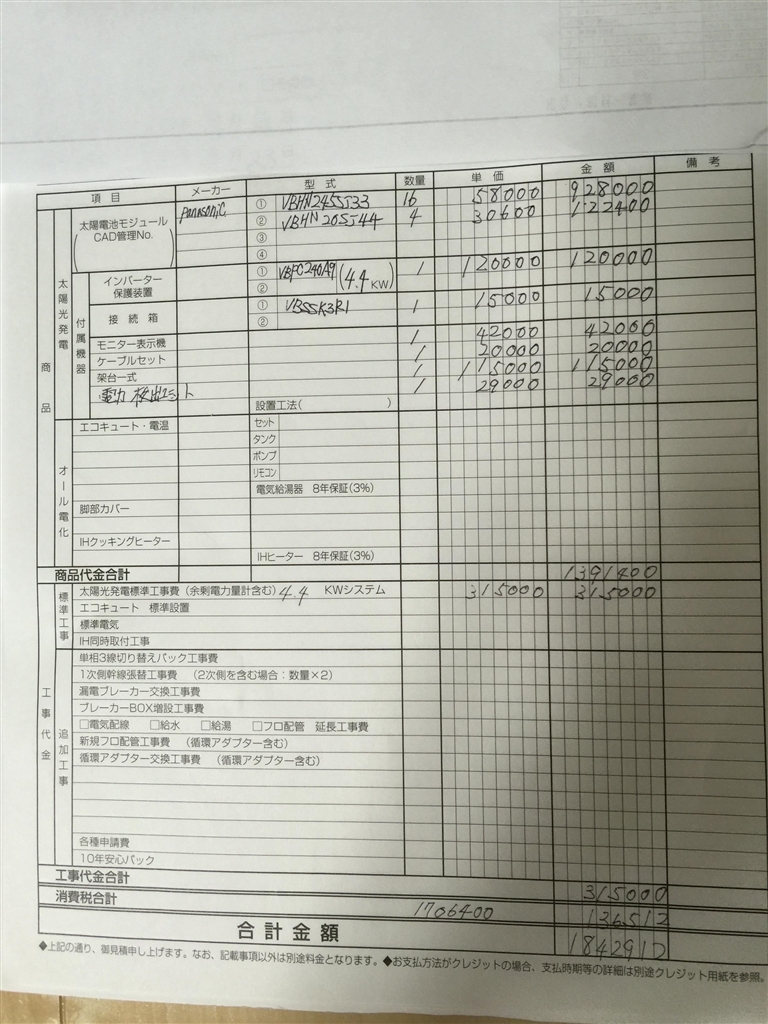 項目 メーカー 型式 数量 単価 金額 備考
商品
太陽光発電
太陽電池モジュール Panasonic ① VBHN245SJ33 16 58000 928000
CAD管理No. ② VBHN205J44 4 30600 122400
( ) ③
④
付属機器
インバーター ① VBPC240A9 (4.4KW) 1 120000 120000
保護装置 ②
接続箱 ① VBSSK3R1 1 15000 15000
②
モニター表示機 1 42000 42000
ケーブルセット 1 20000 20000
架台一式 1 115000 115000
電力検出ユニット 1 29000 29000
設置工法( )
オール電化
エコキュート・電温 セット
タンク
ポンプ
リモコン
電気給湯器 8年保証(3%)
脚部カバー
IHクッキングヒーター
IHヒーター 8年保証(3%)
商品代金合計 1391400
工事代金
標準工事
太陽光発電標準工事費(余剰電力量計含む) 4.4 KWシステム 315000 315000
エコキュート 標準設置
標準電気
IH同時取付工事
追加工事
単相3線切り替えパック工事費
1次側幹線張替工事費 (2次側を含む場合:数量×2)
漏電ブレーカー交換工事費
ブレーカーBOX増設工事費
□電気配線 □給水 □給湯 □フロ配管 延長工事費
新規フロ配管工事費 (循環アダプター含む)
循環アダプター交換工事費 (循環アダプター含む)
各種申請費
10年安心パック
工事代金合計 315000
消費税合計 1706400 136512
合計金額 1842912
◆上記の通り、御見積申し上げます。なお、記載事項以外は別途料金となります。◆お支払方法がクレジットの場合、支払時期等の詳細は別途クレジット用紙を参照。